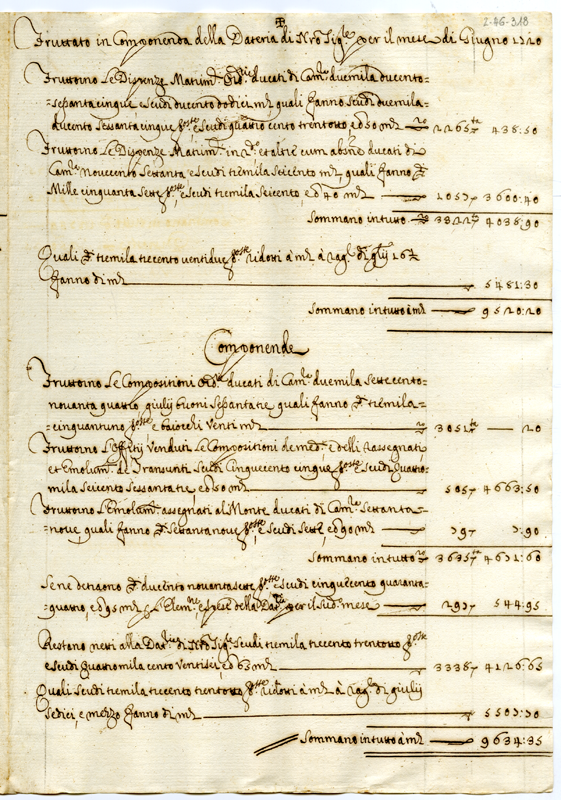 2-46-318
Fruttato in Componenda della Dateria di Nro Sigre per il mese di Giugno 1720
Fruttorno Le Dispenze Matrim. Ordrie ducati di Camra duemila ducento=
=settanta cinque e scudi ducento dodici mta quali fanno scudi duemila=
ducento sessanta cinque stte, e scudi quattro cento trentotto, e d 50 mta 2265 438:50
Fruttorno Le Dispenze Matrim. in 2o. et altre cum absne ducati di
Camra Novecento Settanta e scudi tremila Seicento mta quali fanno
Mille cinquanta sette stte, e scudi tremila Seicento, e d 40 mta 1057 3600:40
Sommano in tutto 3322 4038:90
Quali tremila trecento ventidue stte ridotti à mta à ragne di giulij 16½
fanno di mta 5481:30
Sommano in tutto à mta 9520:20
Componende
Fruttorno Le Compositioni Ordrie ducati di Camra duemila Sette cento=
novanta quattro, giulij buoni Settanta tre quali fanno tremila=
=cinquantuno stte e baiocchi venti mta 3051 20
Fruttorno L'Offitij Venduti, Le Compositioni de med. e delli rassegnati
et Emolum. de Transunti Scudi Cinquecento cinque stte e Scudi quattro=
mila Seicento Sessanta tre, e d 50 mta 505 4663:50
Fruttorno L'Emolum. assegnati al Monte ducati di Camra Settanta=
=nove, quali fanno Settanta nove stte, e Scudi Sette, e d 90 mta 79 7:90
Sommano in tutto 3635 4671:60
Se ne detraono ducento novanta sette stte e scudi cinquecento quaranta=
=quattro, e d 95 mta p L'Elemne, e spese della Datria per il Sud. mese 297 544:95
Restano netti alla Datria di Nro Sigre Scudi tremila trecento trentotto stte
e scudi quattromila cento ventisei, e d 65 mta 3338 4126:65
Quali Scudi tremila trecento trentotto stte ridotti à mta à ragne di giulij
Sedici, e mezzo fanno di mta 5507:70
Sommano in tutto à mta 9634:35